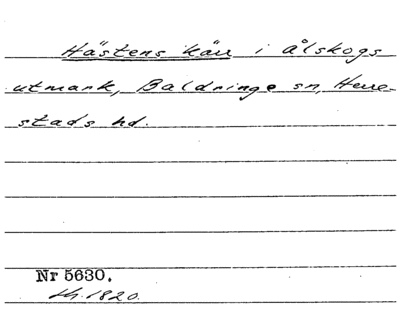 Hästens kärr i Ålskogs
utmark, Baldringe sn, Herre-
stads hd.
Nr 5630.
1820.